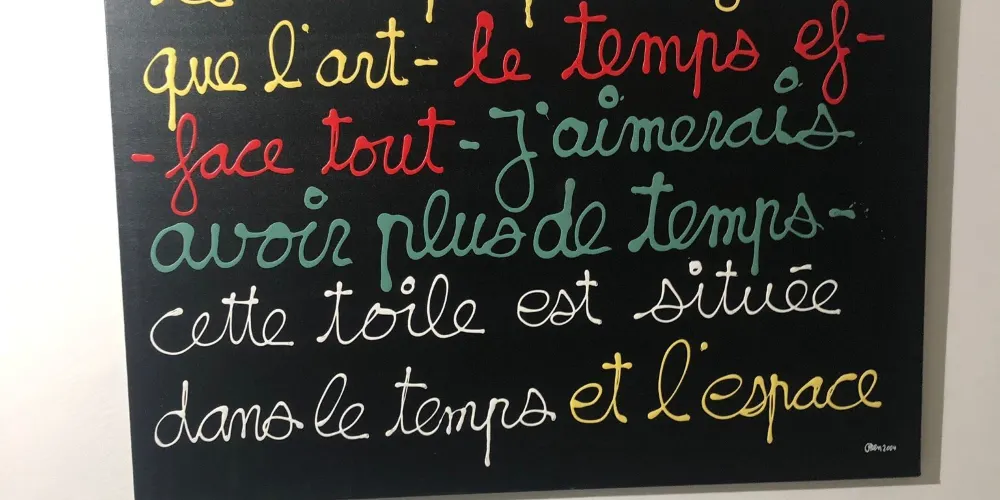 que l'art - le temps ef-
- face tout - J'aimerais
avoir plus de temps -
cette toile est située
dans le temps et l'espace